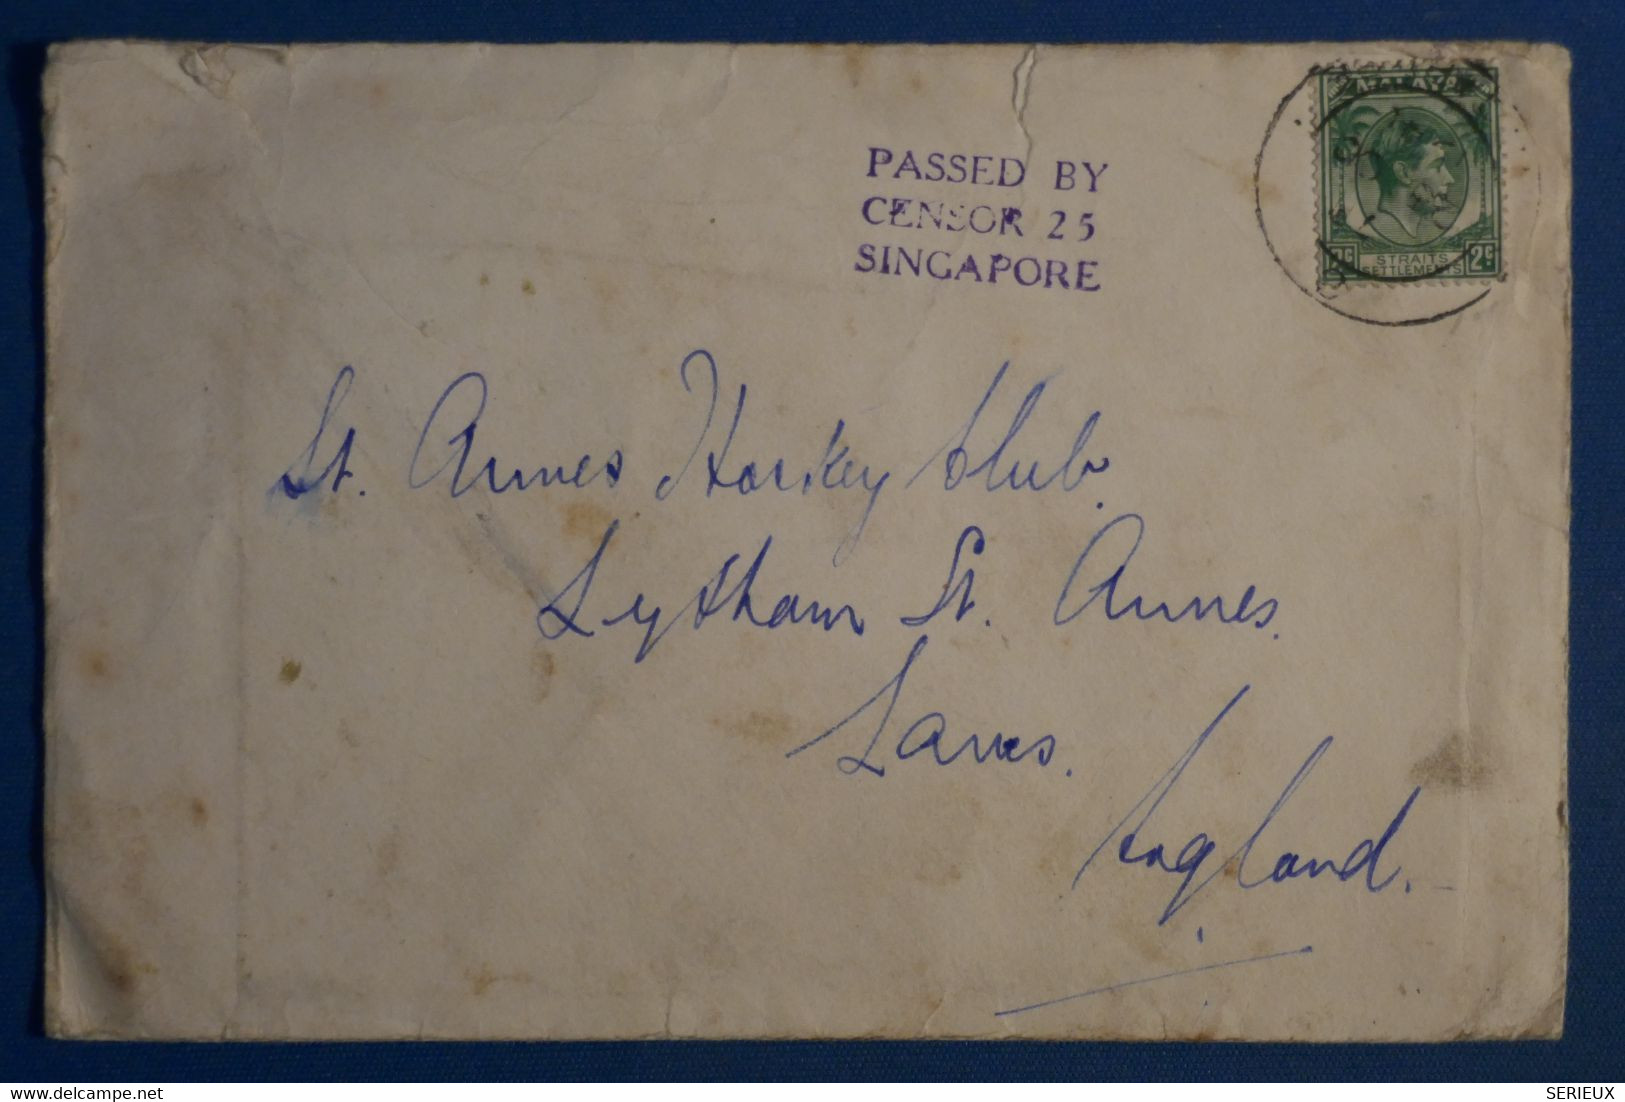 PASSED BY
CENSOR 25
SINGAPORE
MALAYA
STRAITS
SETTLEMENTS
2c 2c
St. Annes Hockey Club.
Lytham St. Annes.
Lancs.
England.
delcampe.net
SERIEUX